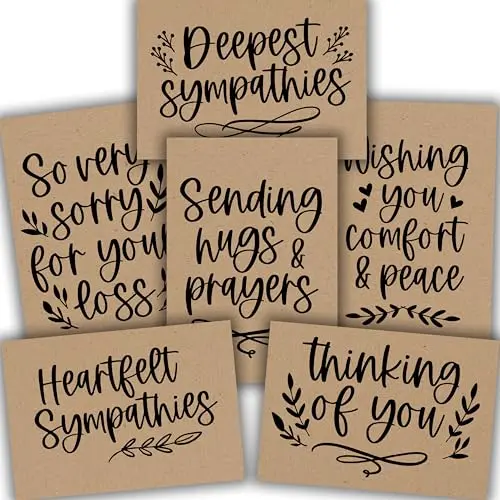 Deepest
sympathies
So very
sorry
for your
loss
Sending
hugs &
prayers
Wishing
you
comfort
& peace
Heartfelt
Sympathies
thinking
of you